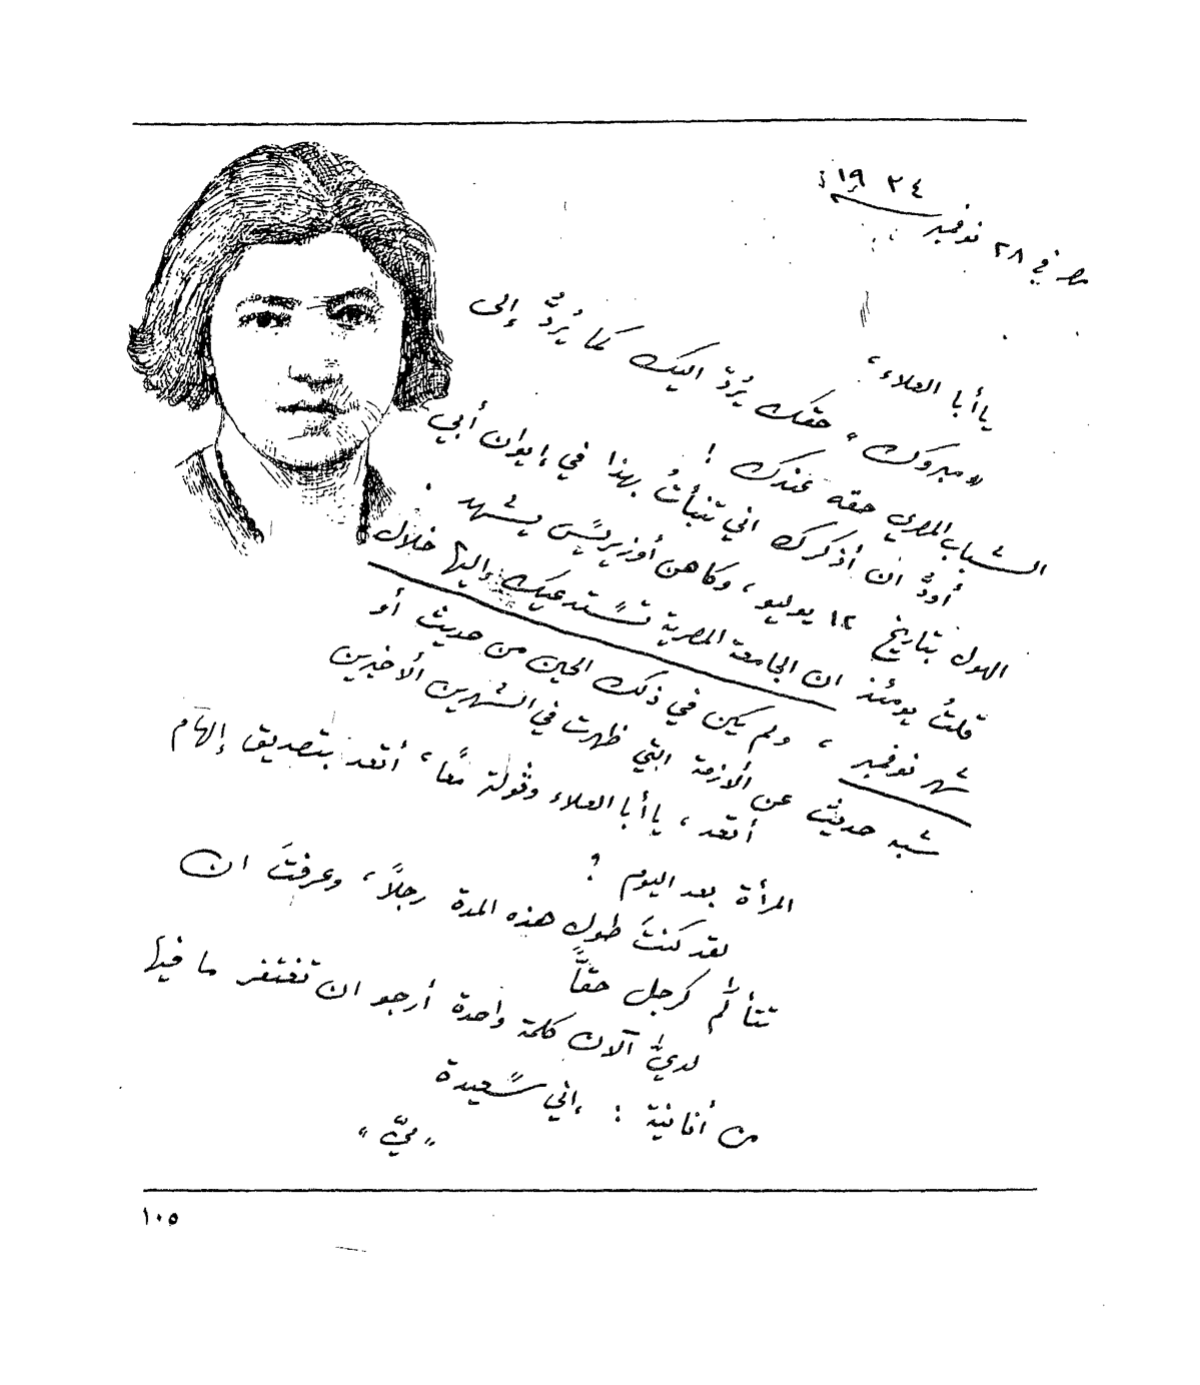 مصر في ٢٨ نوفمبر ١٩٣٤
يا أبا العلاء،
«مبروك» حقك يُردّ اليك كما يُردُّ إلى
الشباب المصري حقه عندك !
أودُّ ان أذكرك اني تنبأتُ بهذا في إيوان أبي
الهول بتاريخ ١٢ يوليو، وكاهن أوزيريس يشهد .
قلتُ يومئذ ان الجامعة المصرية تستدعيك إليها خلال
شهر نوفمبر ، ولم يكن في ذلك الحين من حديث أو
شبه حديث عن الأزمة التي ظهرت في الشهرين الأخيرين
أتعد، يا أبا العلاء معًا، أتعد بتصديق إلهام
المرأة بعد اليوم ؟
لقد كنتَ طول هذه المدة رجلاً، وعرفتَ ان
تتألم كرجل حقًّا
لديَّ الآن كلمة واحدة أرجو ان تغتفر ما فيها
من أنانية : اني سعيدة
«ميّ»
١٠٥